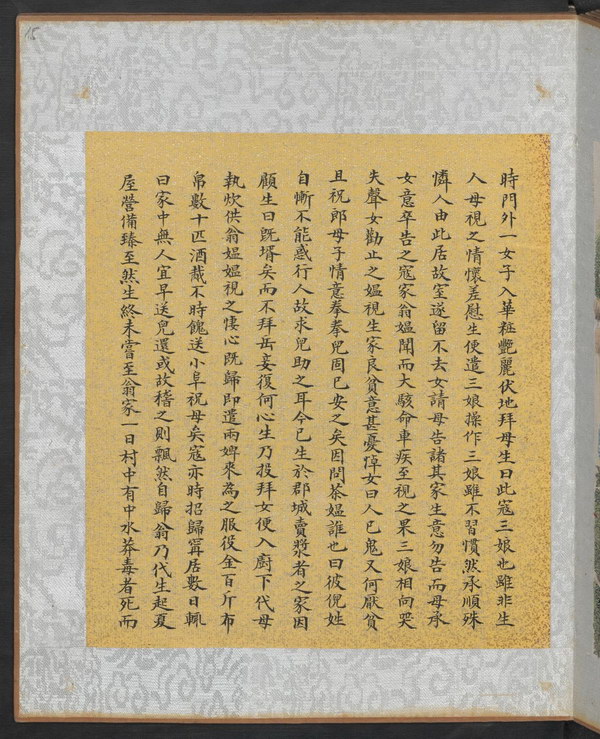 15
時門外一女子入華粧艷麗伏地拜母生曰此寇三娘也雖非生
人母視之情懷差慰生便遣三娘操作三娘雖不習慣然承順殊
憐人由此居故室遂留不去女請母告諸其家生意勿告而母承
女意卒告之寇家翁媼聞而大駭命車疾至視之果三娘相向哭
失聲女勸止之媼視生家良貧意甚憂悼女曰人已鬼又何厭貧
且祝郎母子情意拳拳兒固已安之矣因問茶媼誰也曰彼倪姓
自慚不能惑行人故求兒助之耳今已生於郡城賣漿者之家因
顧生曰既壻矣而不拜岳妾復何心生乃投拜女便入廚下代母
執炊供翁媼媼視之悽心既歸即遣兩婢來為之服役金百斤布
帛數十匹酒胾不時餽送小阜祝母矣寇亦時招歸寧居數日輒
曰家中無人宜早送兒還或故稽之則飄然自歸翁乃代生起夏
屋營備臻至然生終未嘗至翁家一日村中有中水莽毒者死而